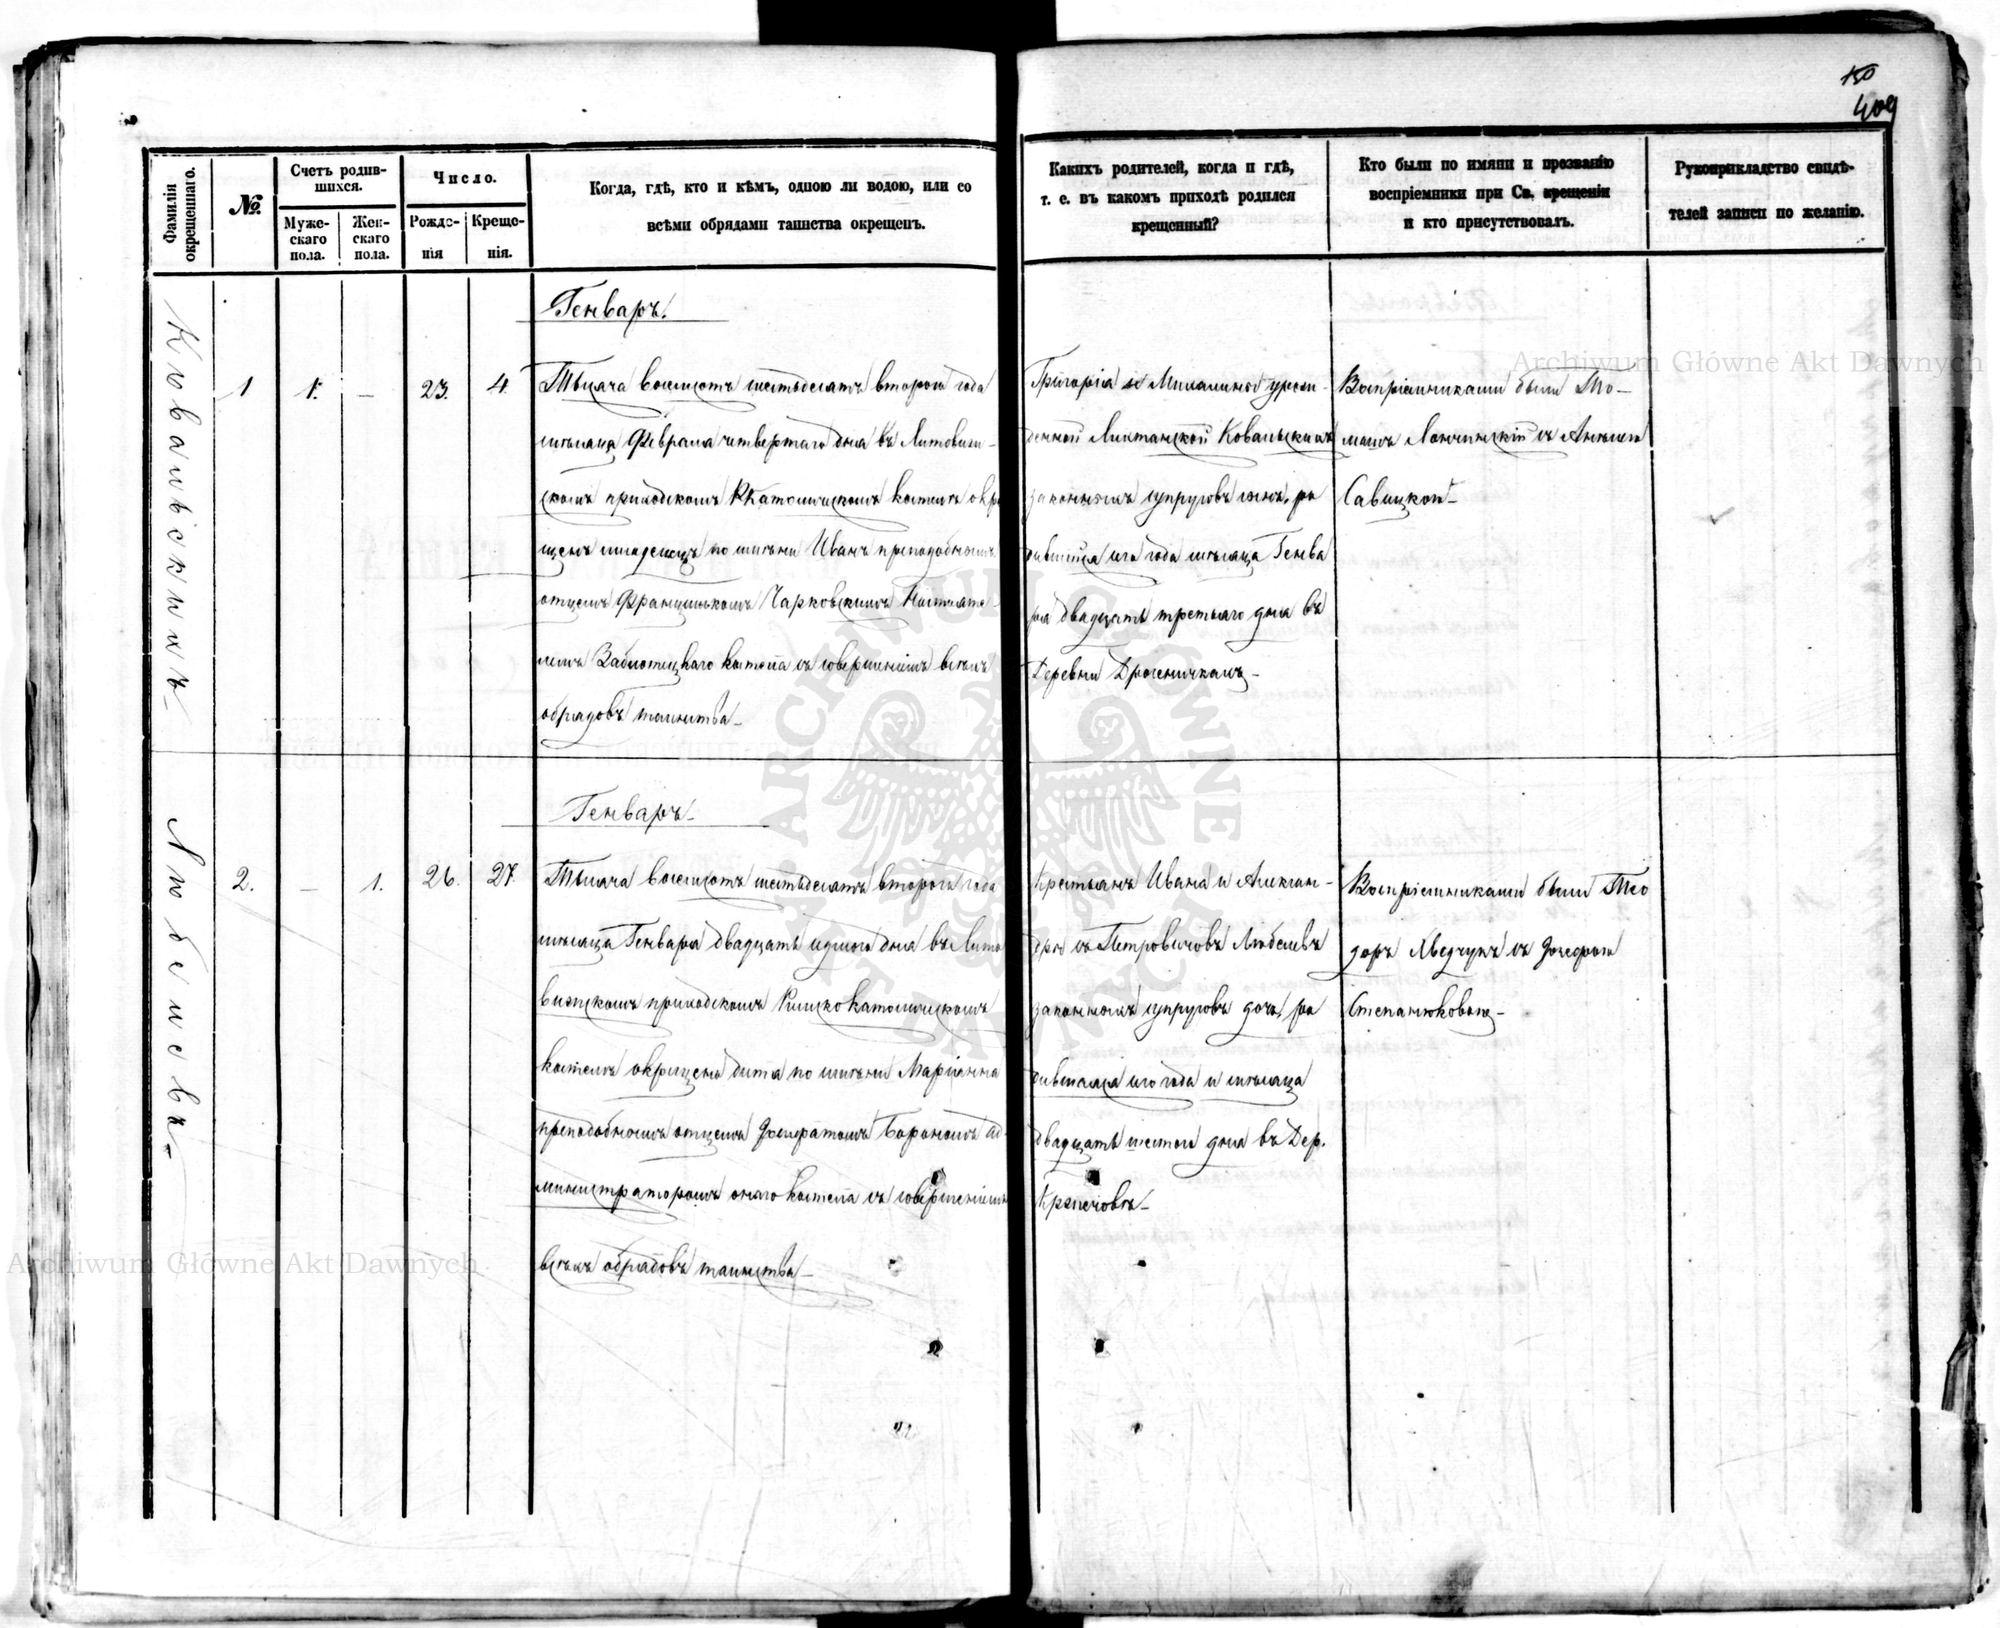 150
409
Фамилія окрещеннаго.
№.
Счетъ родив-
шихся.
Муже-
скаго
пола.
Жен-
скаго
пола.
Число.
Рожде-
нія
Креще-
нія.
Когда, гдѣ, кто и кѣмъ, одною ли водою, или со
всѣми обрядами таинства окрещенъ.
Какихъ родителей, когда и гдѣ,
т. е. въ какомъ приходѣ родился
крещенный?
Кто были по имяни и прозванію
воспріемники при Св. крещеніи
и кто присутствовалъ.
Рукоприкладство свидѣ-
телей записи по желанію.
Ковальскихъ
1
1.
—
23.
4.
Генваръ.
Тысяча восемсотъ шестьдесятъ второго года
мѣсяца Февраля четвертаго дня въ Литовиж-
скомъ приходскомъ РКатолическомъ костелѣ окре
щенъ младенецъ по имени Иванъ преподобнымъ
отцемъ Францишкомъ Чарковскимъ Настояте-
лемъ Заблотецкаго костела съ совершеніемъ всѣхъ
обрядовъ таинства
Григорія и Михалины урож-
денной Ковальскихъ
законныхъ супруговъ сынъ, ро
дившійся сего года мѣсяца Генва
ря двадцать третьяго дня въ
Деревни
Воспріемниками были То-
машъ съ Анелею
Савицкою
Любелевъ
2.
—
1.
26.
27.
Генваръ
Тысяча восемсотъ шестьдесятъ второго года
мѣсяца Генваря двадцать седмого дня въ Лито
вижскомъ приходскомъ Римско Католическомъ
костелѣ окрещено дитя по имени Маріянна
преподобнымъ отцемъ Бораномъ ад-
министраторомъ онаго костела съ совершеніемъ
всѣхъ обрядовъ таинства
Крестьянъ Ивана и Алексан-
дры съ Петровичовъ Любелевъ
законныхъ супруговъ дочь, ро
дившаяся сего года и мѣсяца
двадцать шестого дня въ Дер.
Воспріемниками были Тео
доръ съ
Степанюковою
Archiwum Główne Akt Dawnych
Archiwum Główne Akt Dawnych
ARCHIWUM GŁÓWNE AKT DAWNYCH